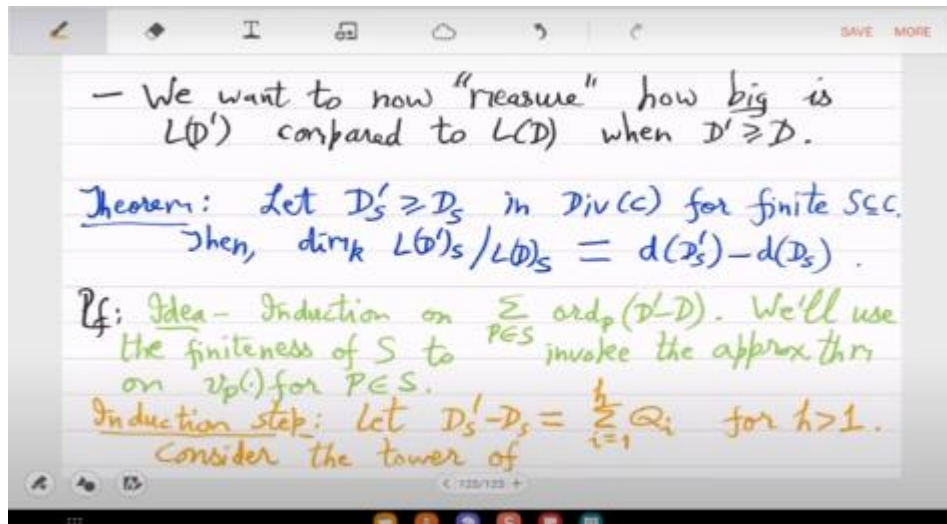 SAVE MORE
– We want to now "measure" how big is
L(D') compared to L(D) when D' ≥ D.
Theorem: Let D'_S ≥ D_S in Div(C) for finite S ⊆ C.
Then, dim_k L(D')_S / L(D)_S = d(D'_S) – d(D_S).
Pf: Idea – Induction on Σ_{P∈S} ord_P(D'-D). We'll use
the finiteness of S to invoke the approx thm
on v_P(·) for P ∈ S.
Induction step: Let D'_S - D_S = Σ_{i=1}^{h} Q_i for h>1.
Consider the tower of
< 125/125 +